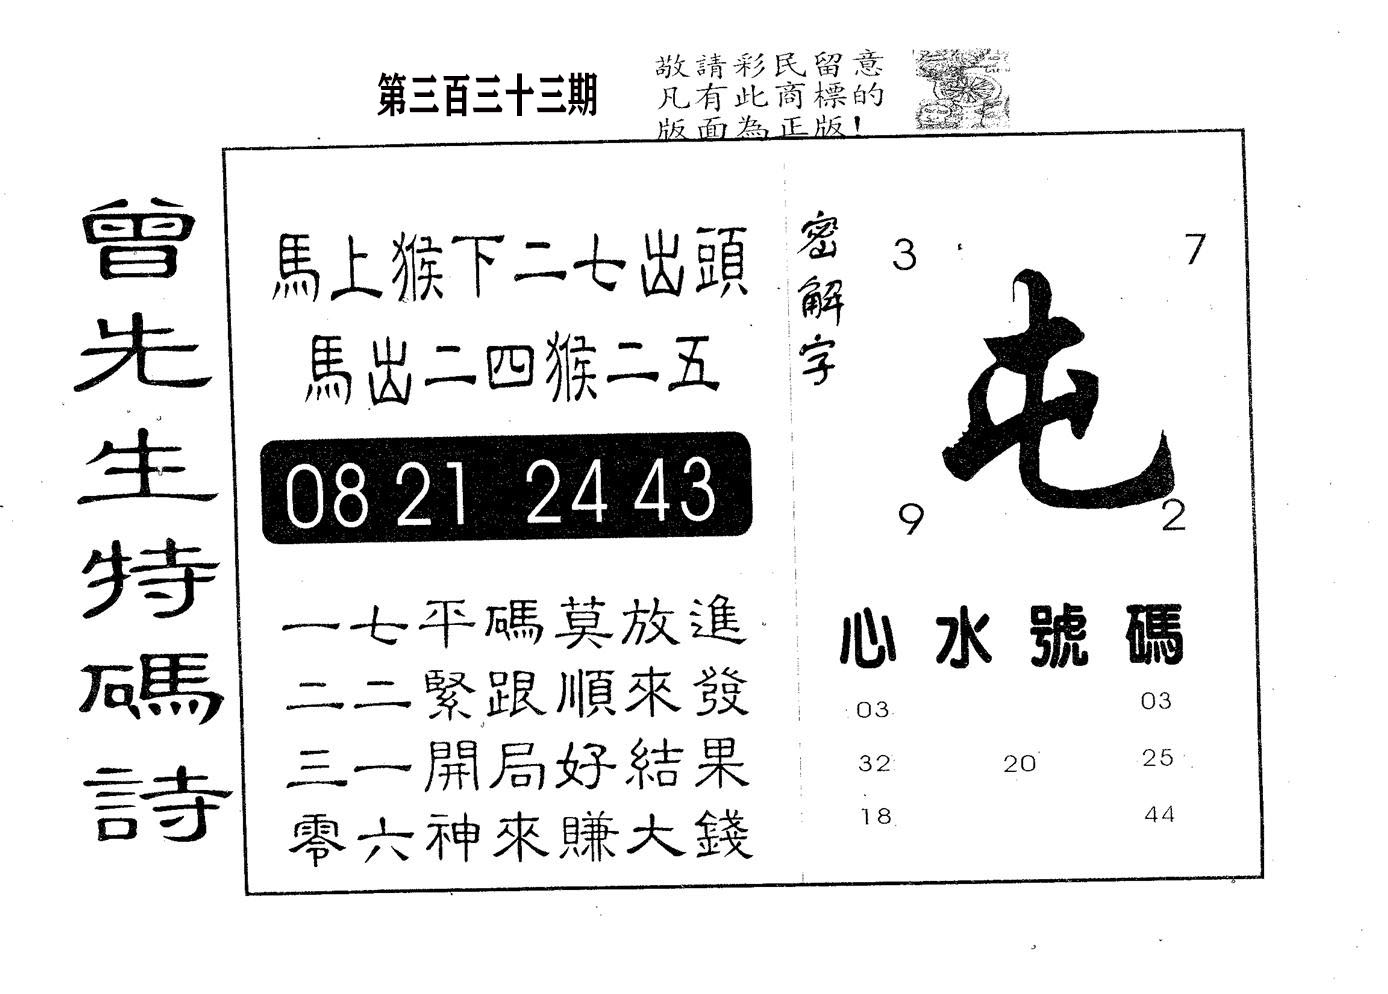 第三百三十三期
敬請彩民留意
凡有此商標的
版面為正版！
曾先生特碼詩
馬上猴下二七出頭
馬出二四猴二五
08 21 24 43
一七平碼莫放進
二二緊跟順來發
三一開局好結果
零六神來賺大錢
密解字
3 7
屯
9 2
心水號碼
03 03
32 20 25
18 44